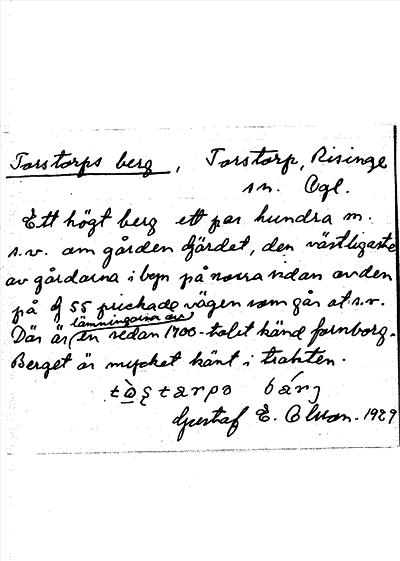 Torstorps berg, Torstorp, Risinge
sn. Ögl.
Ett högt berg ett par hundra m.
s.v. om gården Gärdet, den västligaste
av gårdarna i byn på norra sidan av den
på 55 prickade vägen som går åt s.v.
Där är lämningarna av en sedan 1700-talet känd fornborg.
Berget är mycket känt i trakten.
Gustaf E. 1929